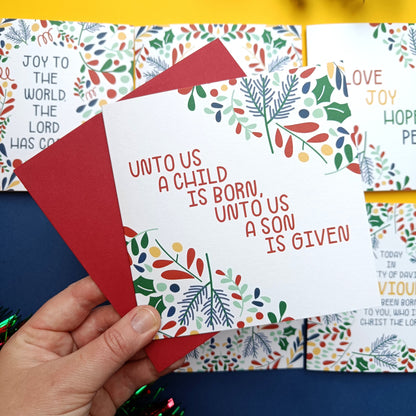 JOY TO
THE
WORLD,
THE
LORD
HAS
UNTO US
A CHILD
IS BORN,
UNTO US
A SON
IS GIVEN
LOVE
JOY
HOPE
TODAY
IN
OF DAVID
BEEN BORN
TO YOU, WHO IS
CHRIST THE LORD